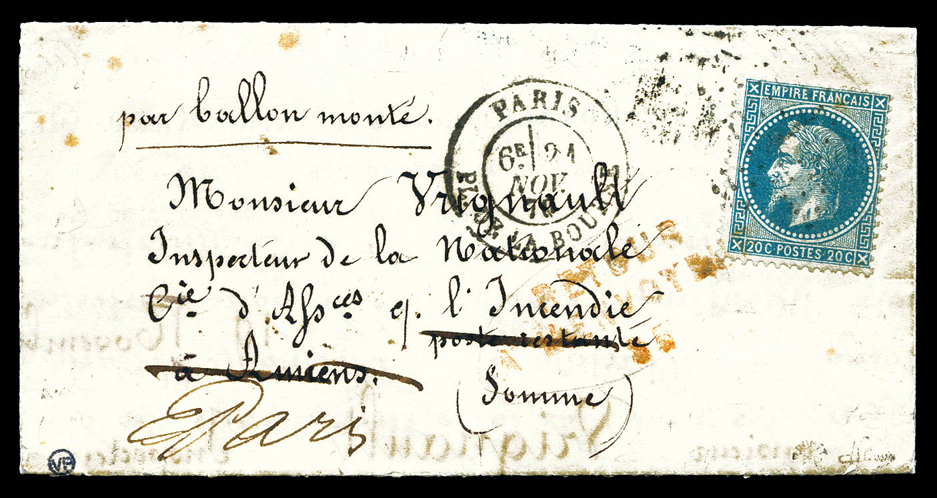 par ballon monté.
PARIS
6E 21
NOV.
70
PL. DE LA BOURSE
EMPIRE FRANÇAIS
20 C POSTES 20 C
Monsieur Vrignault
Inspecteur de la Nationale
Cie d'Assces c. l'Incendie
poste restante
à Amiens.
(Somme)
Paris
RETOUR
VF